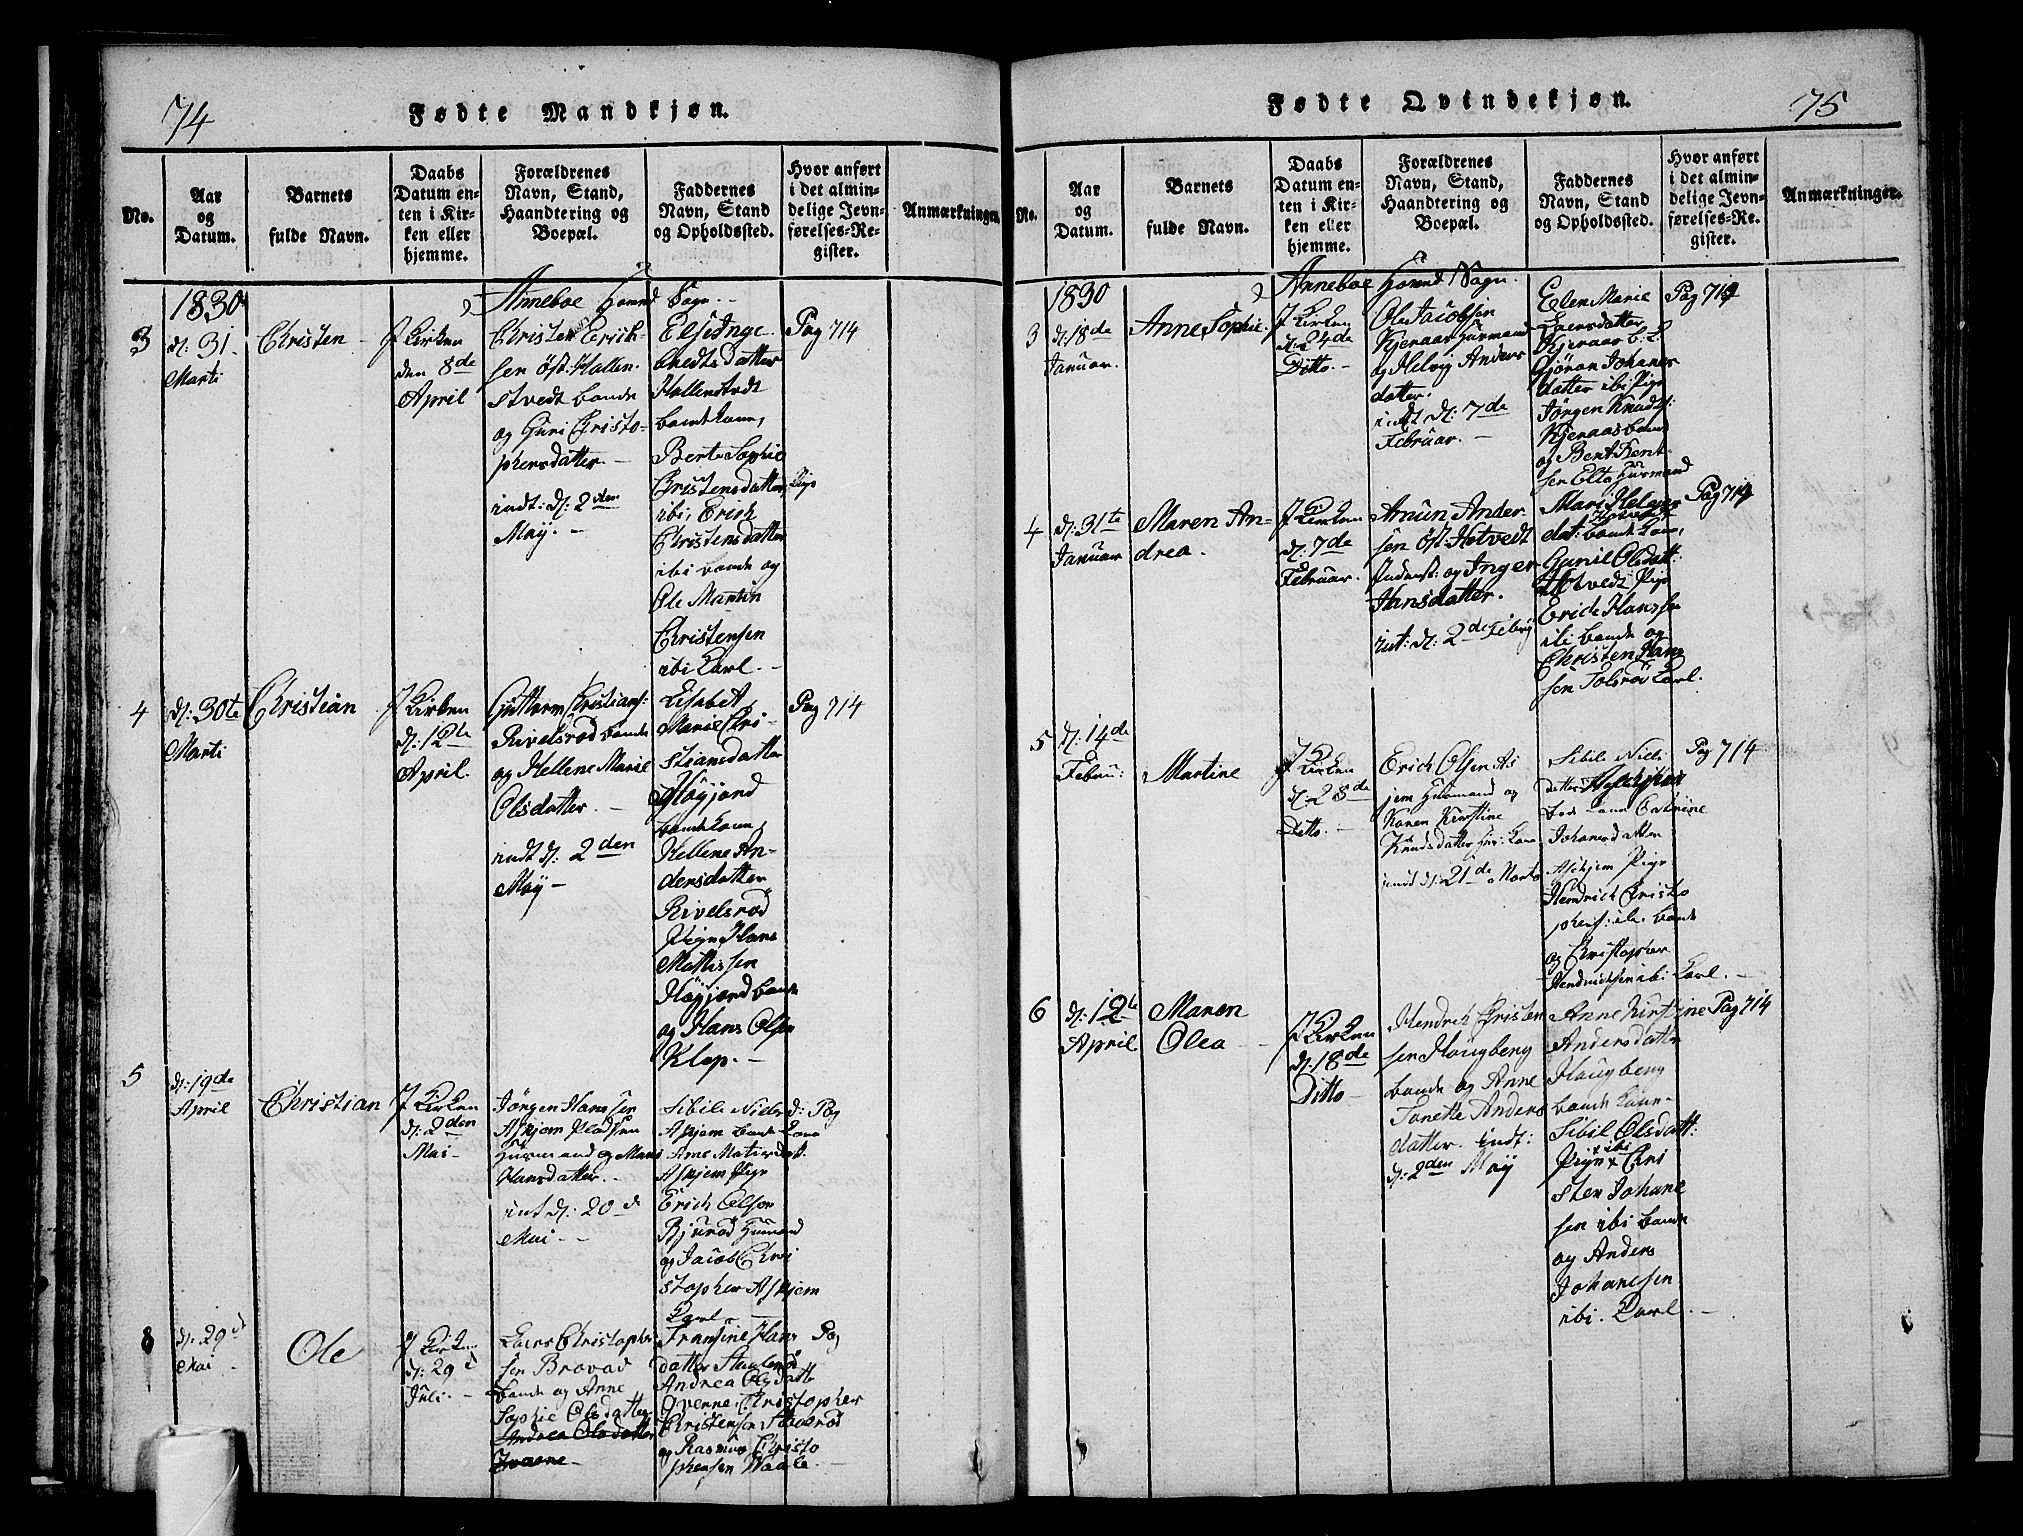 74
Fødte Mandkjøn.
No.
Aar
og
Datum.
Barnets
fulde Navn.
Daabs
Datum en-
ten i Kir-
ken eller
hjemme.
Forældrenes
Navn, Stand,
Haandtering og
Boepæl.
Faddernes
Navn, Stand
og Opholdssted.
Hvor anført
i det almin-
delige Jevn-
førelses-Re-
gister.
Anmærkninger.
1830
Anneboe Hoved Sogn.
3
d: 31
Marti
Christen
J Kirken
den 8de
April
Christen Erich-
sen öst: Hallen-
stvedt bonde
og Guri Christo-
phersdatter. -
indt: d: 2den
Maÿ. -
Else Inge-
bredtsdatter
Hallenstvedt
bondekone,
Berte Sophie
Christensdatter Pige
ibi, Erich
Christensdatter
ibi bonde og
Ole Martin
Christensen
ibi Karl. -
Pag 714
4
d: 30te
Marti
Christian
J Kirken
d: 12te
April.
Guttorm Christians:
Rivelsrød bonde
og Hellene Marie
Olsdatter. -
indt d: 2den
Maÿ -
Lisabet
Marie Chri-
stiansdatter
Høyjord
bondekone,
Hellene An-
dersdatter
Rivelsrød
Pige, Hans
Mathissen
Høyjord bonde
og Hans Olsen
Klop. -
Pag 714
5
d: 19de
April
Christian
J Kirken
d: 2den
Mai -
Jörgen Hanssen
Askjem Pladsen
Huusmand og Mari
Hansdatter. -
indt d: 20d
Mai. -
Sibile Niels d:
Askjem bonde kone
Ane Matisdat:
Askjem Pige
Erich Olsen
Bjurød Husmand
og Jacob Chri
stopher Askjem
Karl -
Pag
8
d: 29d
Mai -
Ole
J Kirken
d: 29d
Juli. -
Laers Christopher
sen Brovad
bonde og Anne
Sophie Olsdatter.
Andrea Olsdatter
Fransine Hans
datter Staulsrød
Andrea Olsdatte
Qvenne, Christopher
Christensen Staulsrød
og Rasmus Christo
phersen Waale. -
Pag
Fødte Qvindekjøn.
75
No.
Aar
og
Datum.
Barnets
fulde Navn.
Daabs
Datum en-
ten i Kir-
ken eller
hjemme.
Forældrenes
Navn, Stand,
Haandtering og
Boepæl.
Faddernes
Navn, Stand
og Opholdssted.
Hvor anført
i det almin-
delige Jevn-
førelses-Re-
gister.
Anmærkninger.
1830
Anneboe Hoved Sogn.
3
d: 18de
Januar.
Anne Sophie.
J Kirken
d: 24de
Ditto. -
Ole Jacobsen
Kjenaas Husmand
og Helvig Anders
datter.
indt d: 7de
Februar. -
Elen Marie
Laersdatter
Kjenaas b: k:
Gjöran Johanes
datter ibi Pige
Jörgen Knuds:
Kjenaas bonde
og Bent Bent
sen Elta Husmand
Pag 714
4
d: 31te
Januar
Maren An-
drea.
J Kirken
d: 7de
Februar.
Anun Ander
sen öst: Hotvedt
Inderst: og Inger
Hansdatter.
int: d: 2de
Mari Helges
dat: bonde kone,
Gunil Olsdatt:
Hotvedt Pige
Erich Hanssen
ibi bonde og
Christen Hans
sen Solsrød Karl.
Pag 714
5
d: 14de
Febru:
Martine
J Kirken
d: 28de
Ditto. -
Erich Olsen As
jem Husmand og
Karen Kirstine
Knudsdatter hus: kone
indt d: 21de Marts
Sibile Niels
datter Askjem
bonde kone Catrine
Johanesdatter
Askjem Pige
Hendrich Christo
phers: ibi bonde
og Christopher
Hendrichsen ibi Karl. -
Pag 714
6
d: 12te
April
Maren
Olea
J Kirken
d: 18de
Ditto -
Hendrich Christen
sen Haugberg
bonde og Anne
Tonette Anders
datter. indt:
d: 2den Maÿ
Anne Kirstine
Andersdatter
Haugberg
bonde kone -
Sibil Olsdatt:
Pige ibi Chri
sten Johane
sen ibi bonde
og Anders
Johanesen
ibi. Karl. -
Pag 714